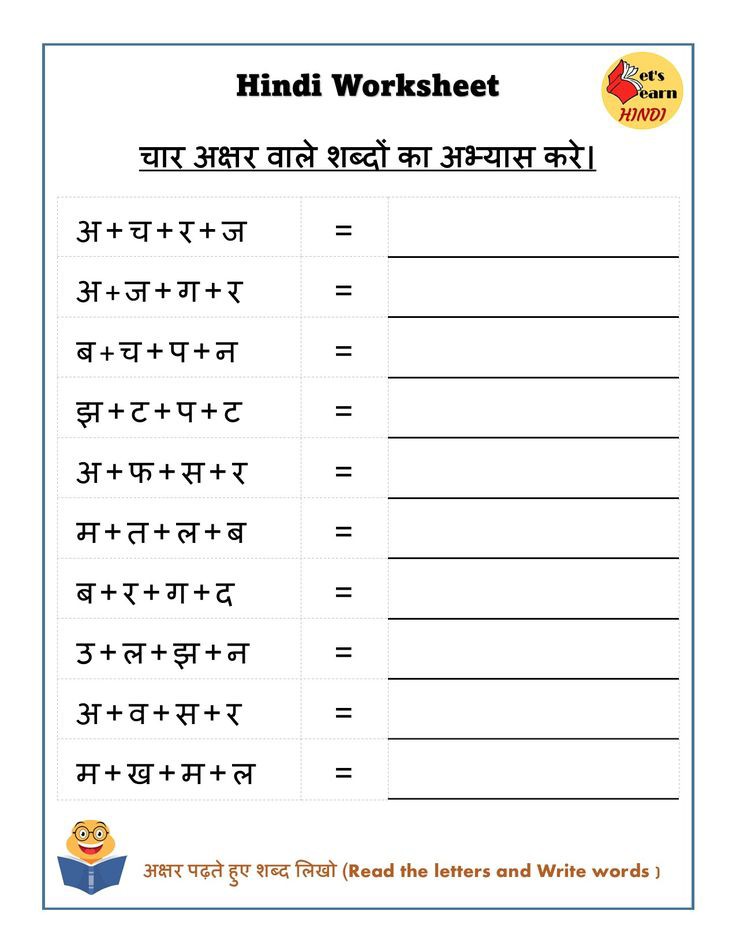 Hindi Worksheet
Let's
Learn
HINDI
चार अक्षर वाले शब्दों का अभ्यास करे।
अ+च+र+ज =
अ+ज+ग+र =
ब+च+प+न =
झ+ट+प+ट =
अ+फ+स+र =
म+त+ल+ब =
ब+र+ग+द =
उ+ल+झ+न =
अ+व+स+र =
म+ख+म+ल =
अक्षर पढ़ते हुए शब्द लिखो (Read the letters and Write words )